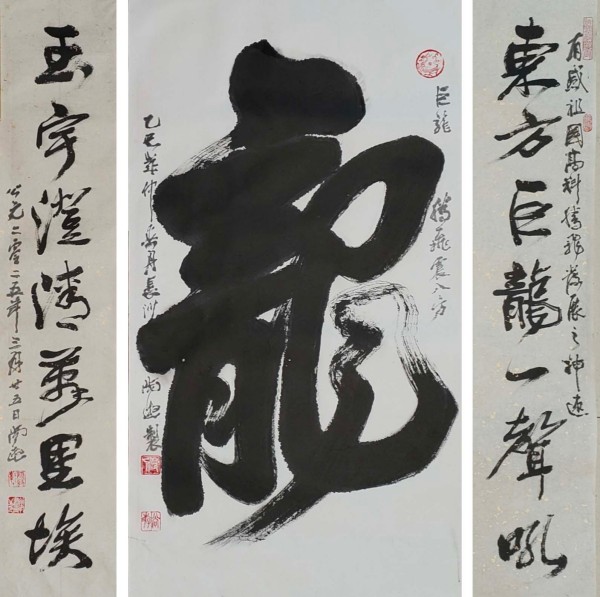 有感祖國高科騰飛發展之神速
東方巨龍一聲吼
巨龍騰飛震八方
龍
乙巳 仲春月長沙
玉宇澄清萬里埃
公元二零二五年三月廿五日